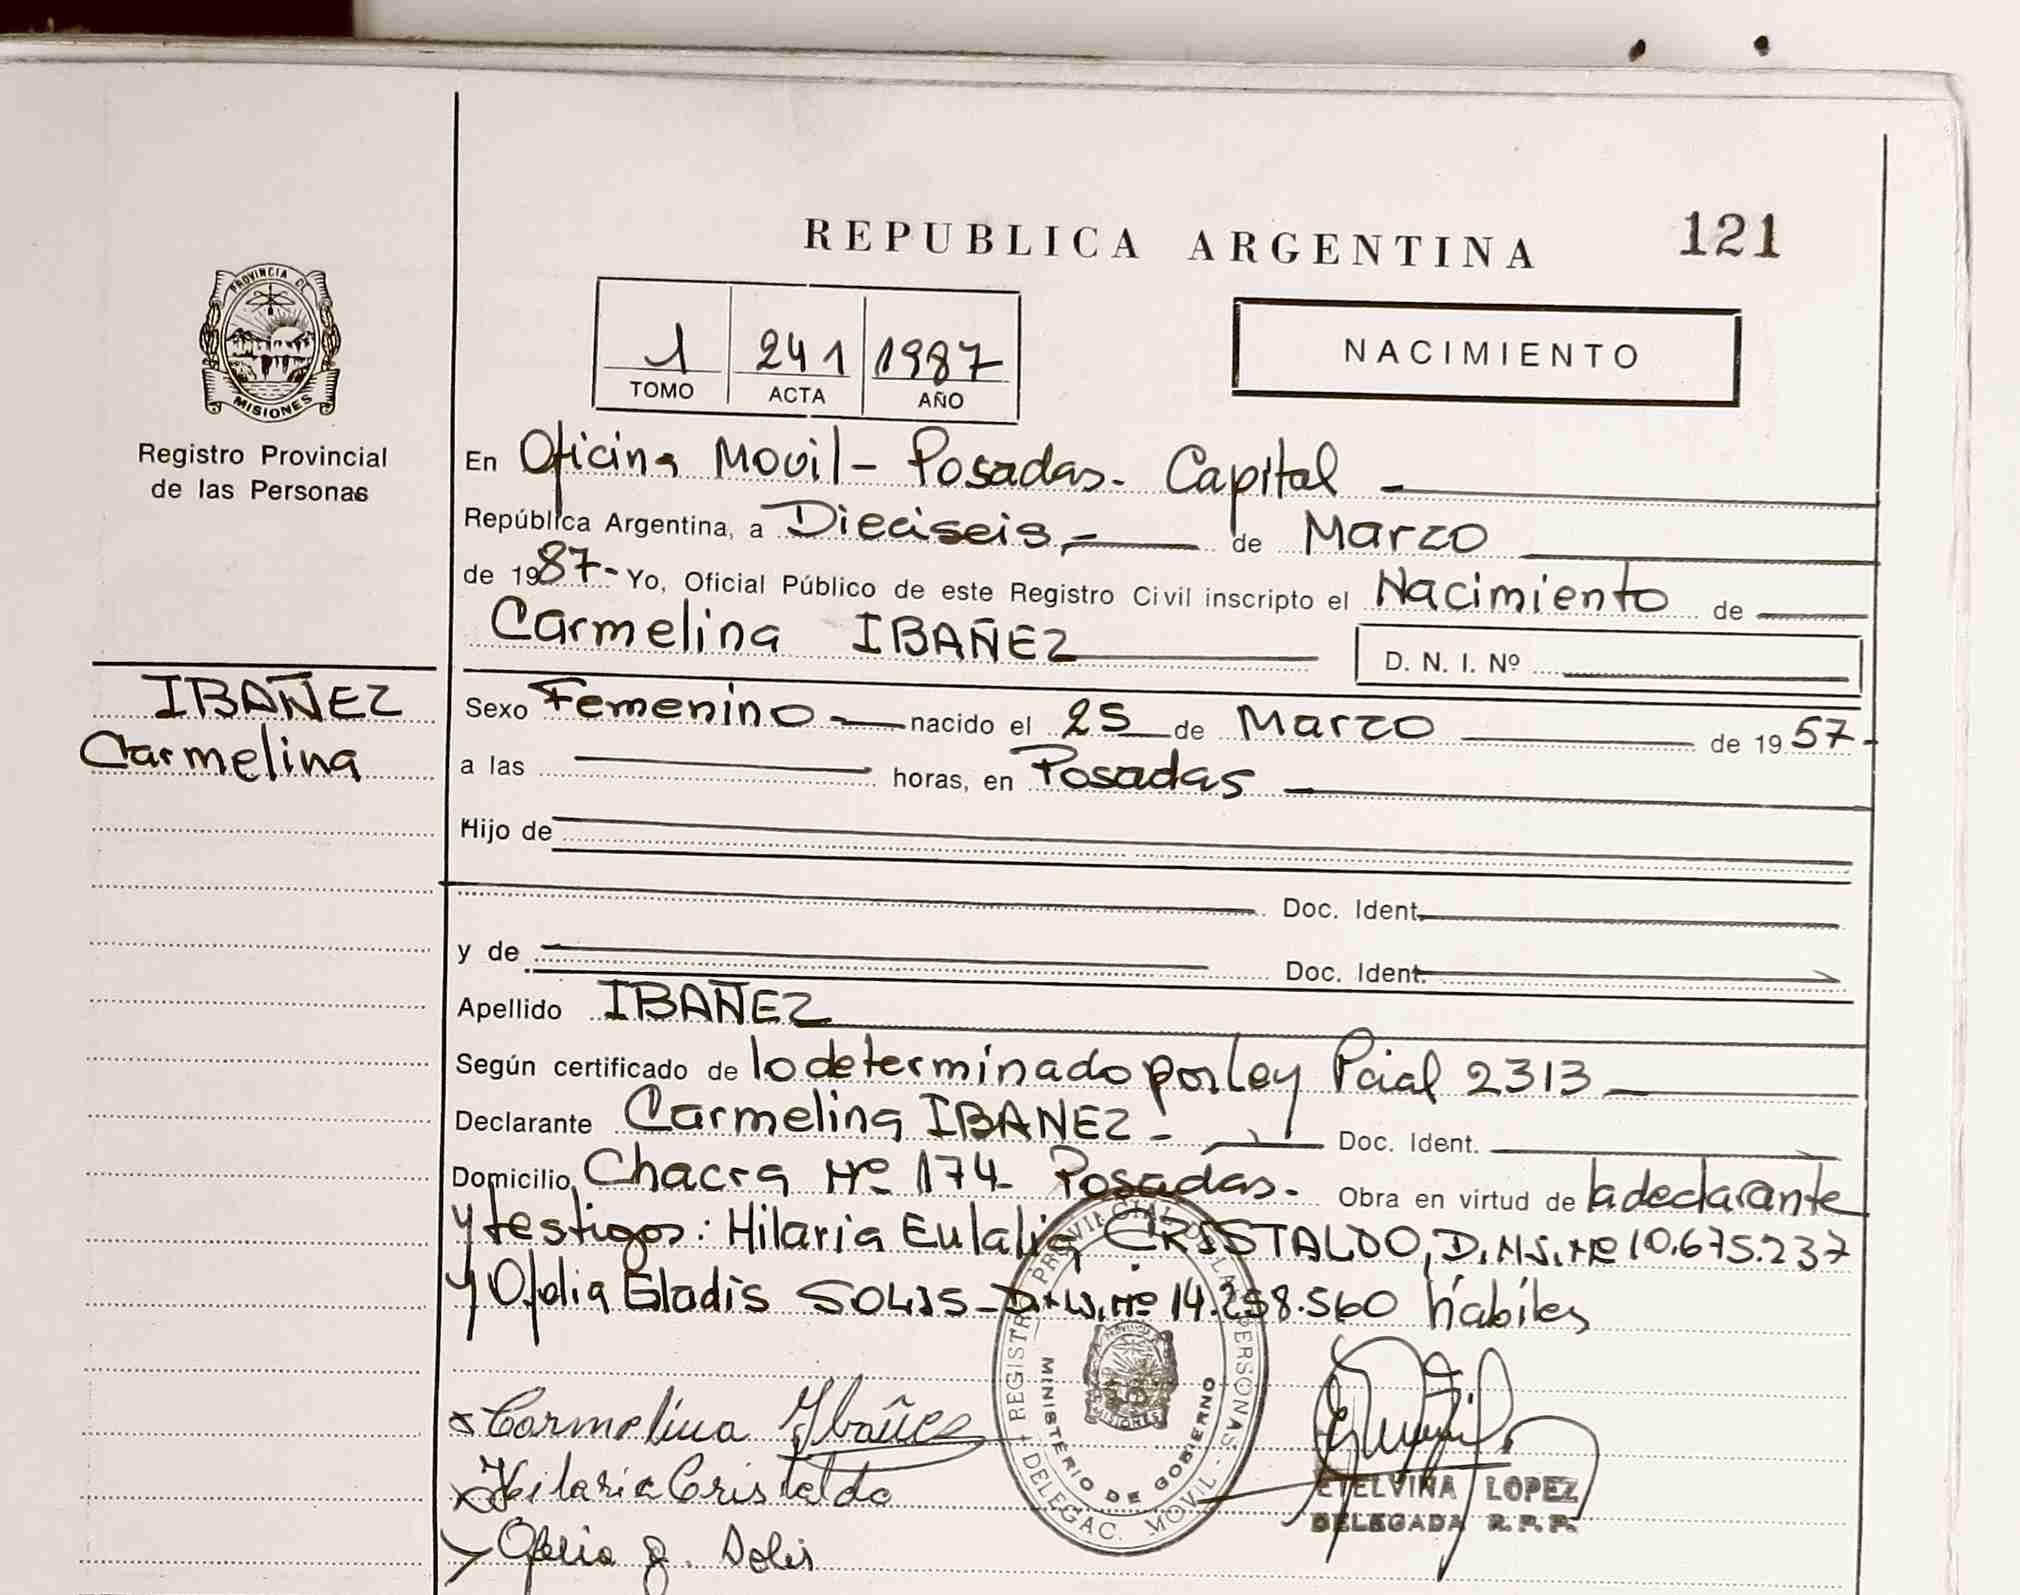 REPUBLICA ARGENTINA
121
PROVINCIA DE
MISIONES
Registro Provincial
de las Personas
1 241 1987
TOMO ACTA AÑO
NACIMIENTO
En Oficina Movil - Posadas - Capital
República Argentina, a Dieciseis de Marzo
de 1987- Yo, Oficial Público de este Registro Civil inscripto el Nacimiento de
Carmelina IBAÑEZ
D. N. I. Nº
IBAÑEZ
Carmelina
Sexo Femenino nacido el 25 de Marzo de 1957
a las horas, en Posadas
Hijo de
Doc. Ident.
y de Doc. Ident.
Apellido IBAÑEZ
Según certificado de lo determinado por Ley Pcial 2313
Declarante Carmelina IBAÑEZ - Doc. Ident.
Domicilio Chacra Nº 174 - Posadas - Obra en virtud de la declarante
y testigos: Hilaria Eulalia CRISTALDO, D.N.I. Nº 10.675.237
y Ofelia Gladis SOLIS - D.N.I. Nº 14.258.560 hábiles
Carmelina Ibañez
Hilaria Cristaldo
Ofelia G. Solis
REGISTRO PROVINCIAL DE LAS PERSONAS - DELEGAC. MOVIL
MINISTERIO DE GOBIERNO
MISIONES
ETELVINA LOPEZ
DELEGADA R.P.P.